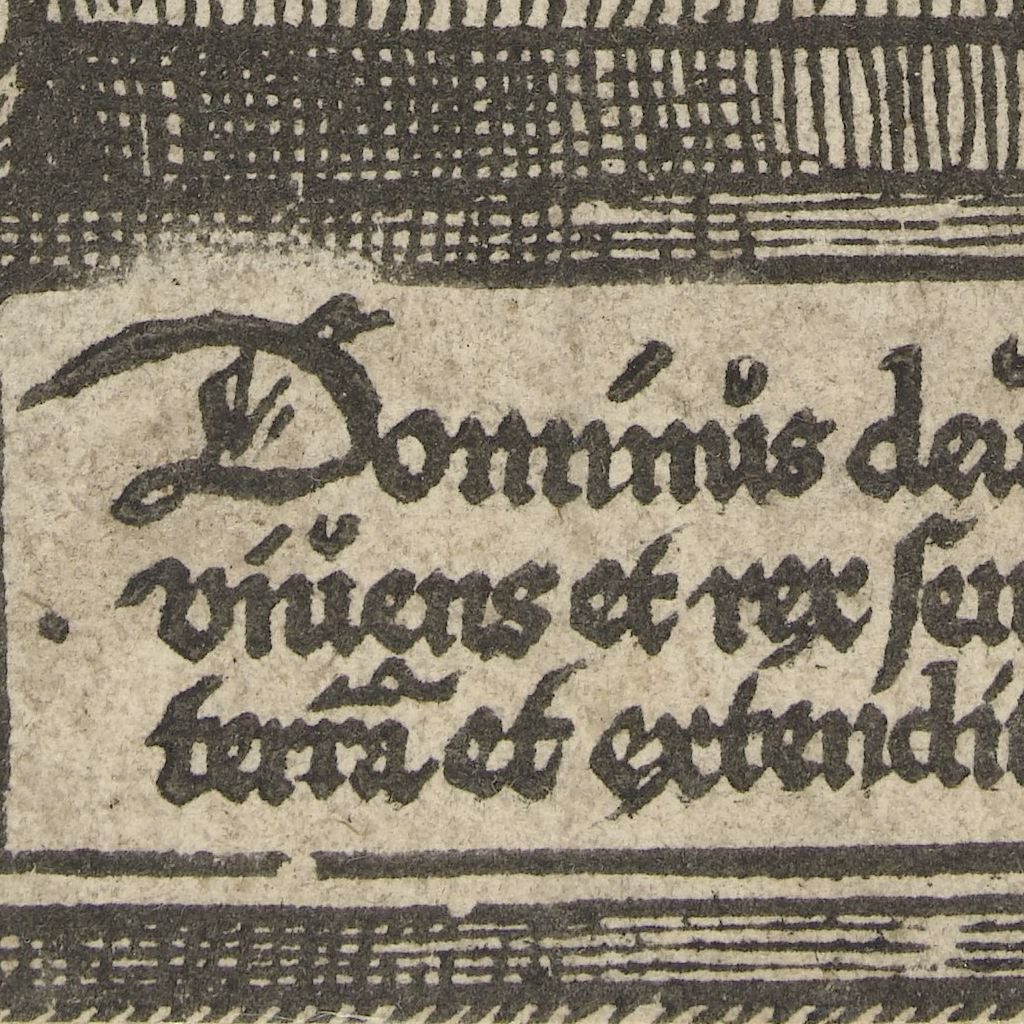 Dominus deu
viuens et rex sem
terrā et extendit